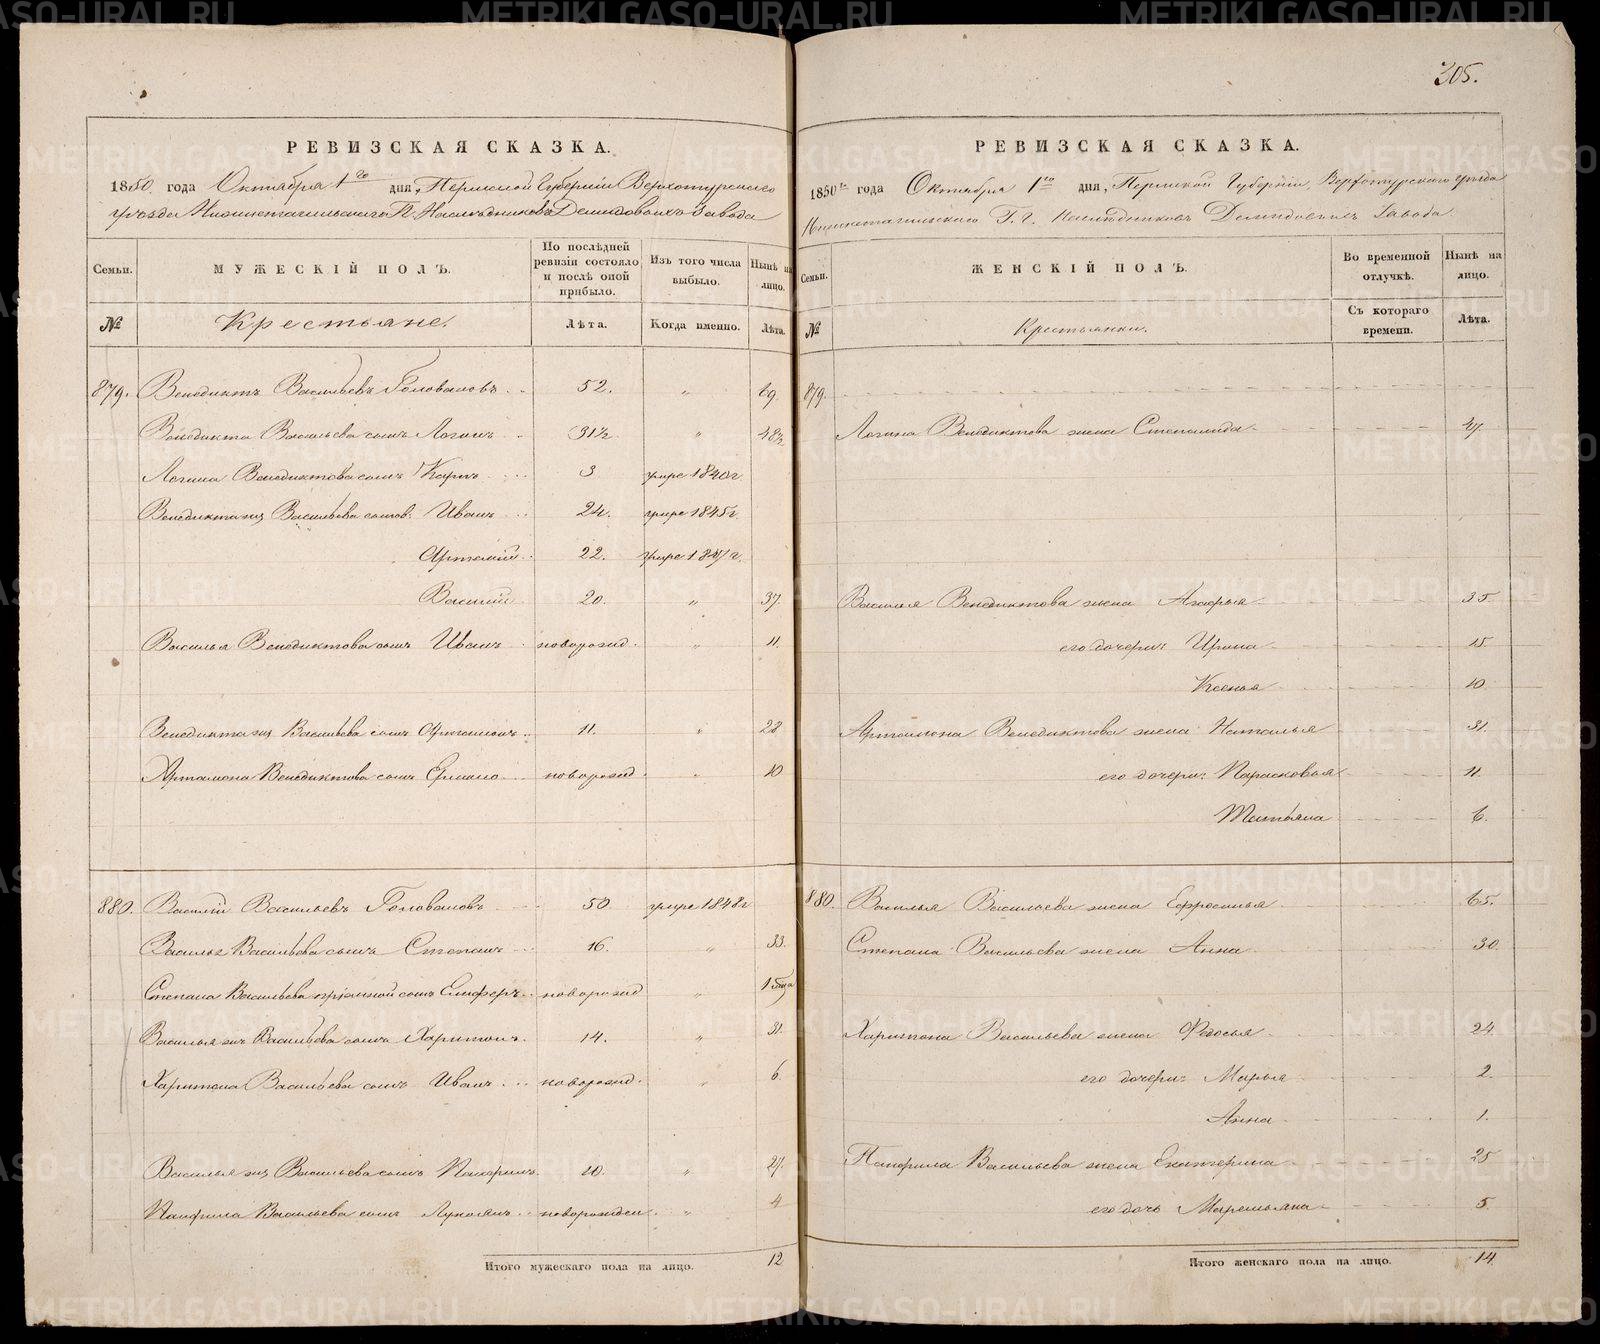 305.
РЕВИЗСКАЯ СКАЗКА.
1850. года Октября 1го дня, Пермской Губернии Верхотурскаго
уезда Нижнетагильскаго Наследниковъ Демидовыхъ завода
Семьи. МУЖЕСКІЙ ПОЛЪ. По послѣдней ревизіи состояло и послѣ оной прибыло. Изъ того числа выбыло. Нынѣ на лицо.
№ Крестьяне. Лѣта. Когда именно. Лѣта.
879. Венедиктъ Васильевъ Головановъ 52. " 69
Венедикта Васильева сынъ Логинъ 31½ " 48½
Логина Венедиктова сынъ Карпъ 3 умре 1840г
Венедикта жъ Васильева сынов: Иванъ 24. умре 1845г.
Артемій 22. умре 1847г.
Василій 20. " 37.
Василья Венедиктова сынъ Иванъ новорожд. " 11.
Венедикта жъ Васильева сынъ Артамонъ 11. " 28
Артамона Венедиктова сынъ новорожд. " 10
880. Василій Васильевъ Головановъ 50 умре 1848г
Василья Васильева сынъ Степанъ 16. " 33.
Степана Васильева пріемной сынъ новорожд " 1
Василья жъ Васильева сынъ Харитонъ 14. " 31.
Харитона Васильева сынъ Иванъ новорожд. " 6
Василья жъ Васильева сынъ Панфилъ 10. " 27.
Панфила Васильева сынъ Лукоянъ новорожден. " 4
Итого мужескаго пола на лицо. 12
РЕВИЗСКАЯ СКАЗКА.
1850го года Октября 1го дня, Пермской Губерніи, Верхотурскаго уезда
Нижнетагильскаго Г.г. Наследниковъ Демидовыхъ Завода.
Семьи. ЖЕНСКІЙ ПОЛЪ. Во временной отлучкѣ. Нынѣ на лицо.
№ Крестьянки. Съ котораго времени. Лѣта.
879.
Логина Венедиктова жена Степанида 47.
Василья Венедиктова жена 35
его дочери: Ирина 15.
Ксенья 10
Артамона Венедиктова жена Наталья 31.
его дочери: Парасковья 11.
Татьяна 6.
880. Василья Васильева жена Ефросинья 65.
Степана Васильева жена Анна 30.
Харитона Васильева жена Федосья 24
его дочери: Марья 2.
Анна 1.
Панфила Васильева жена Екатерина 25
его дочь Маремьяна 5.
Итого женскаго пола на лицо. 14
METRIKI.GASO-URAL.RU